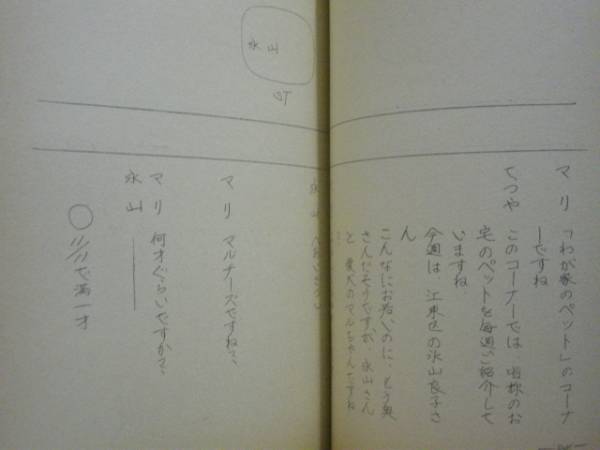 マリ 「わが家のペット」のコーナ
ーですね
てつや このコーナーでは 皆様のお
宅のペットを毎週ご紹介して
いますね
今週は 江東区の永山良子さ
ん
こんなにお若いのに、もう奥
さんだそうですが、永山さん
と 愛犬のマルちゃんですね
永山
マリ マルチーズですね?
マリ 何才ぐらいですか?
永山
で満一才
永山